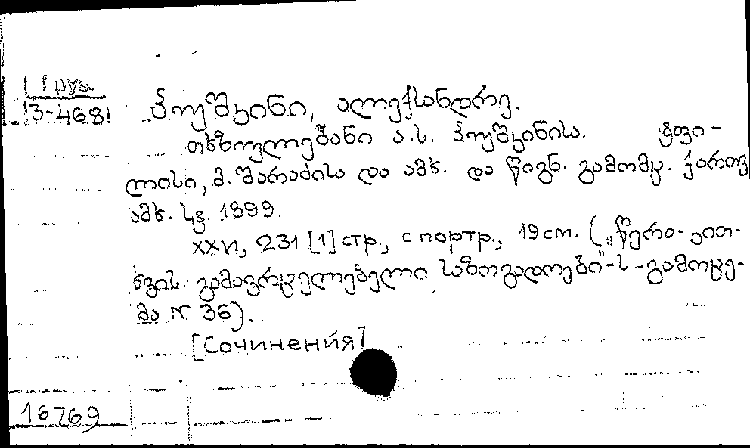 1 груз.
3-4681
პუშკინი, ალექსანდრე.
თხზულებანი ა.ს. პუშკინისა. ტფი-
ლისი, მ. შარაძისა და ამხ. და წიგნ. გამომც. ქართვ.
ამხ. სტ. 1899.
XXVI, 231 [1] стр., с портр., 19 см. („წერა-კით-
ხვის გამავრცელებელი საზოგადოები"-ს გამოცე-
მა № 36).
[Сочинения]
16769